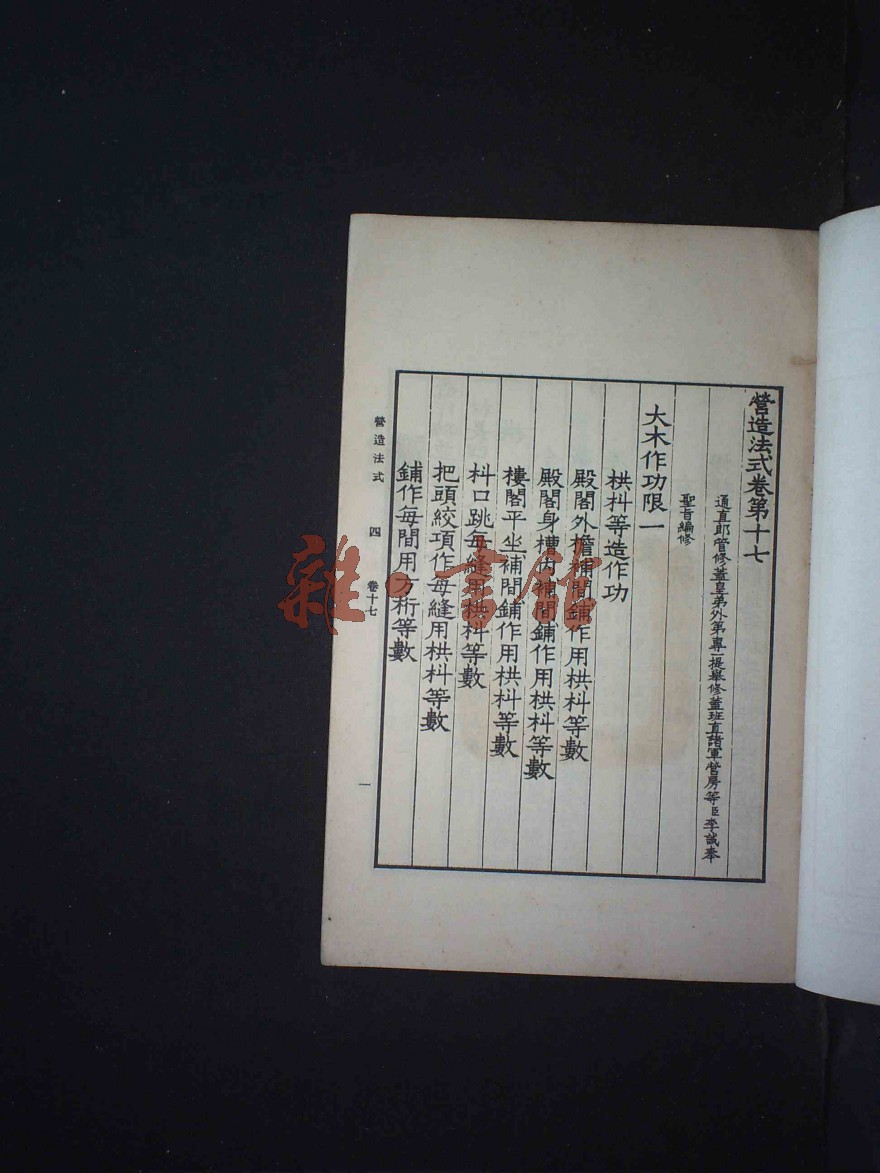 營造法式卷第十七
通直郎管修蓋皇弟外第專一提舉修蓋班直諸軍營房等臣李誡奉
聖旨編修
大木作功限一
栱枓等造作功
殿閣外檐補間鋪作用栱枓等數
殿閣身槽內補間鋪作用栱枓等數
樓閣平坐補間鋪作用栱枓等數
枓口跳每縫用栱枓等數
把頭絞項作每縫用栱枓等數
鋪作每間用方桁等數
營造法式 四 卷十七 一
雜·書館